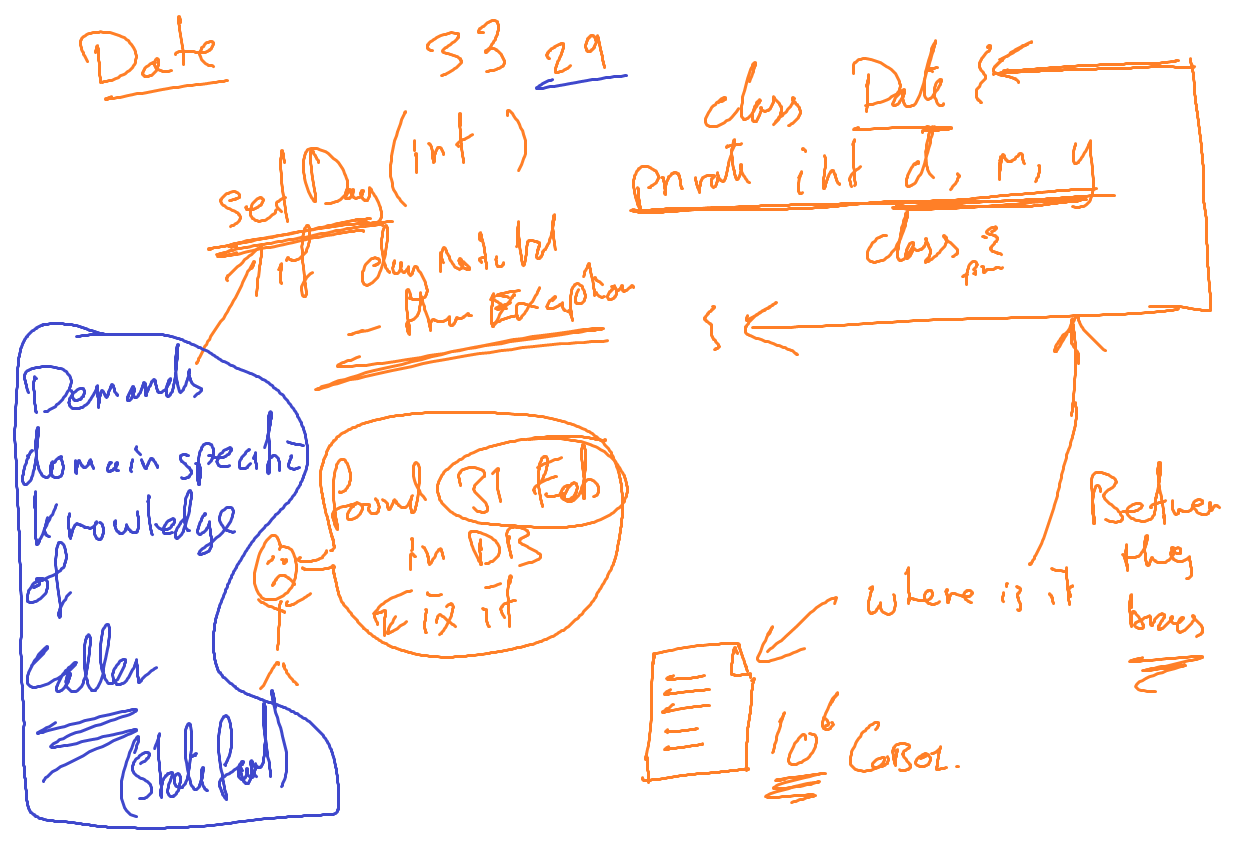 Date
33 29
setDay (int )
if day not bd
- then Exception
class Date {
private int d, m, y
class {
}
Demands
domain specific
knowledge
of
Caller
(State ful)
found 31 Feb
in DB
Fix it
where is it
Between
this
braces
10⁶ COBOL.